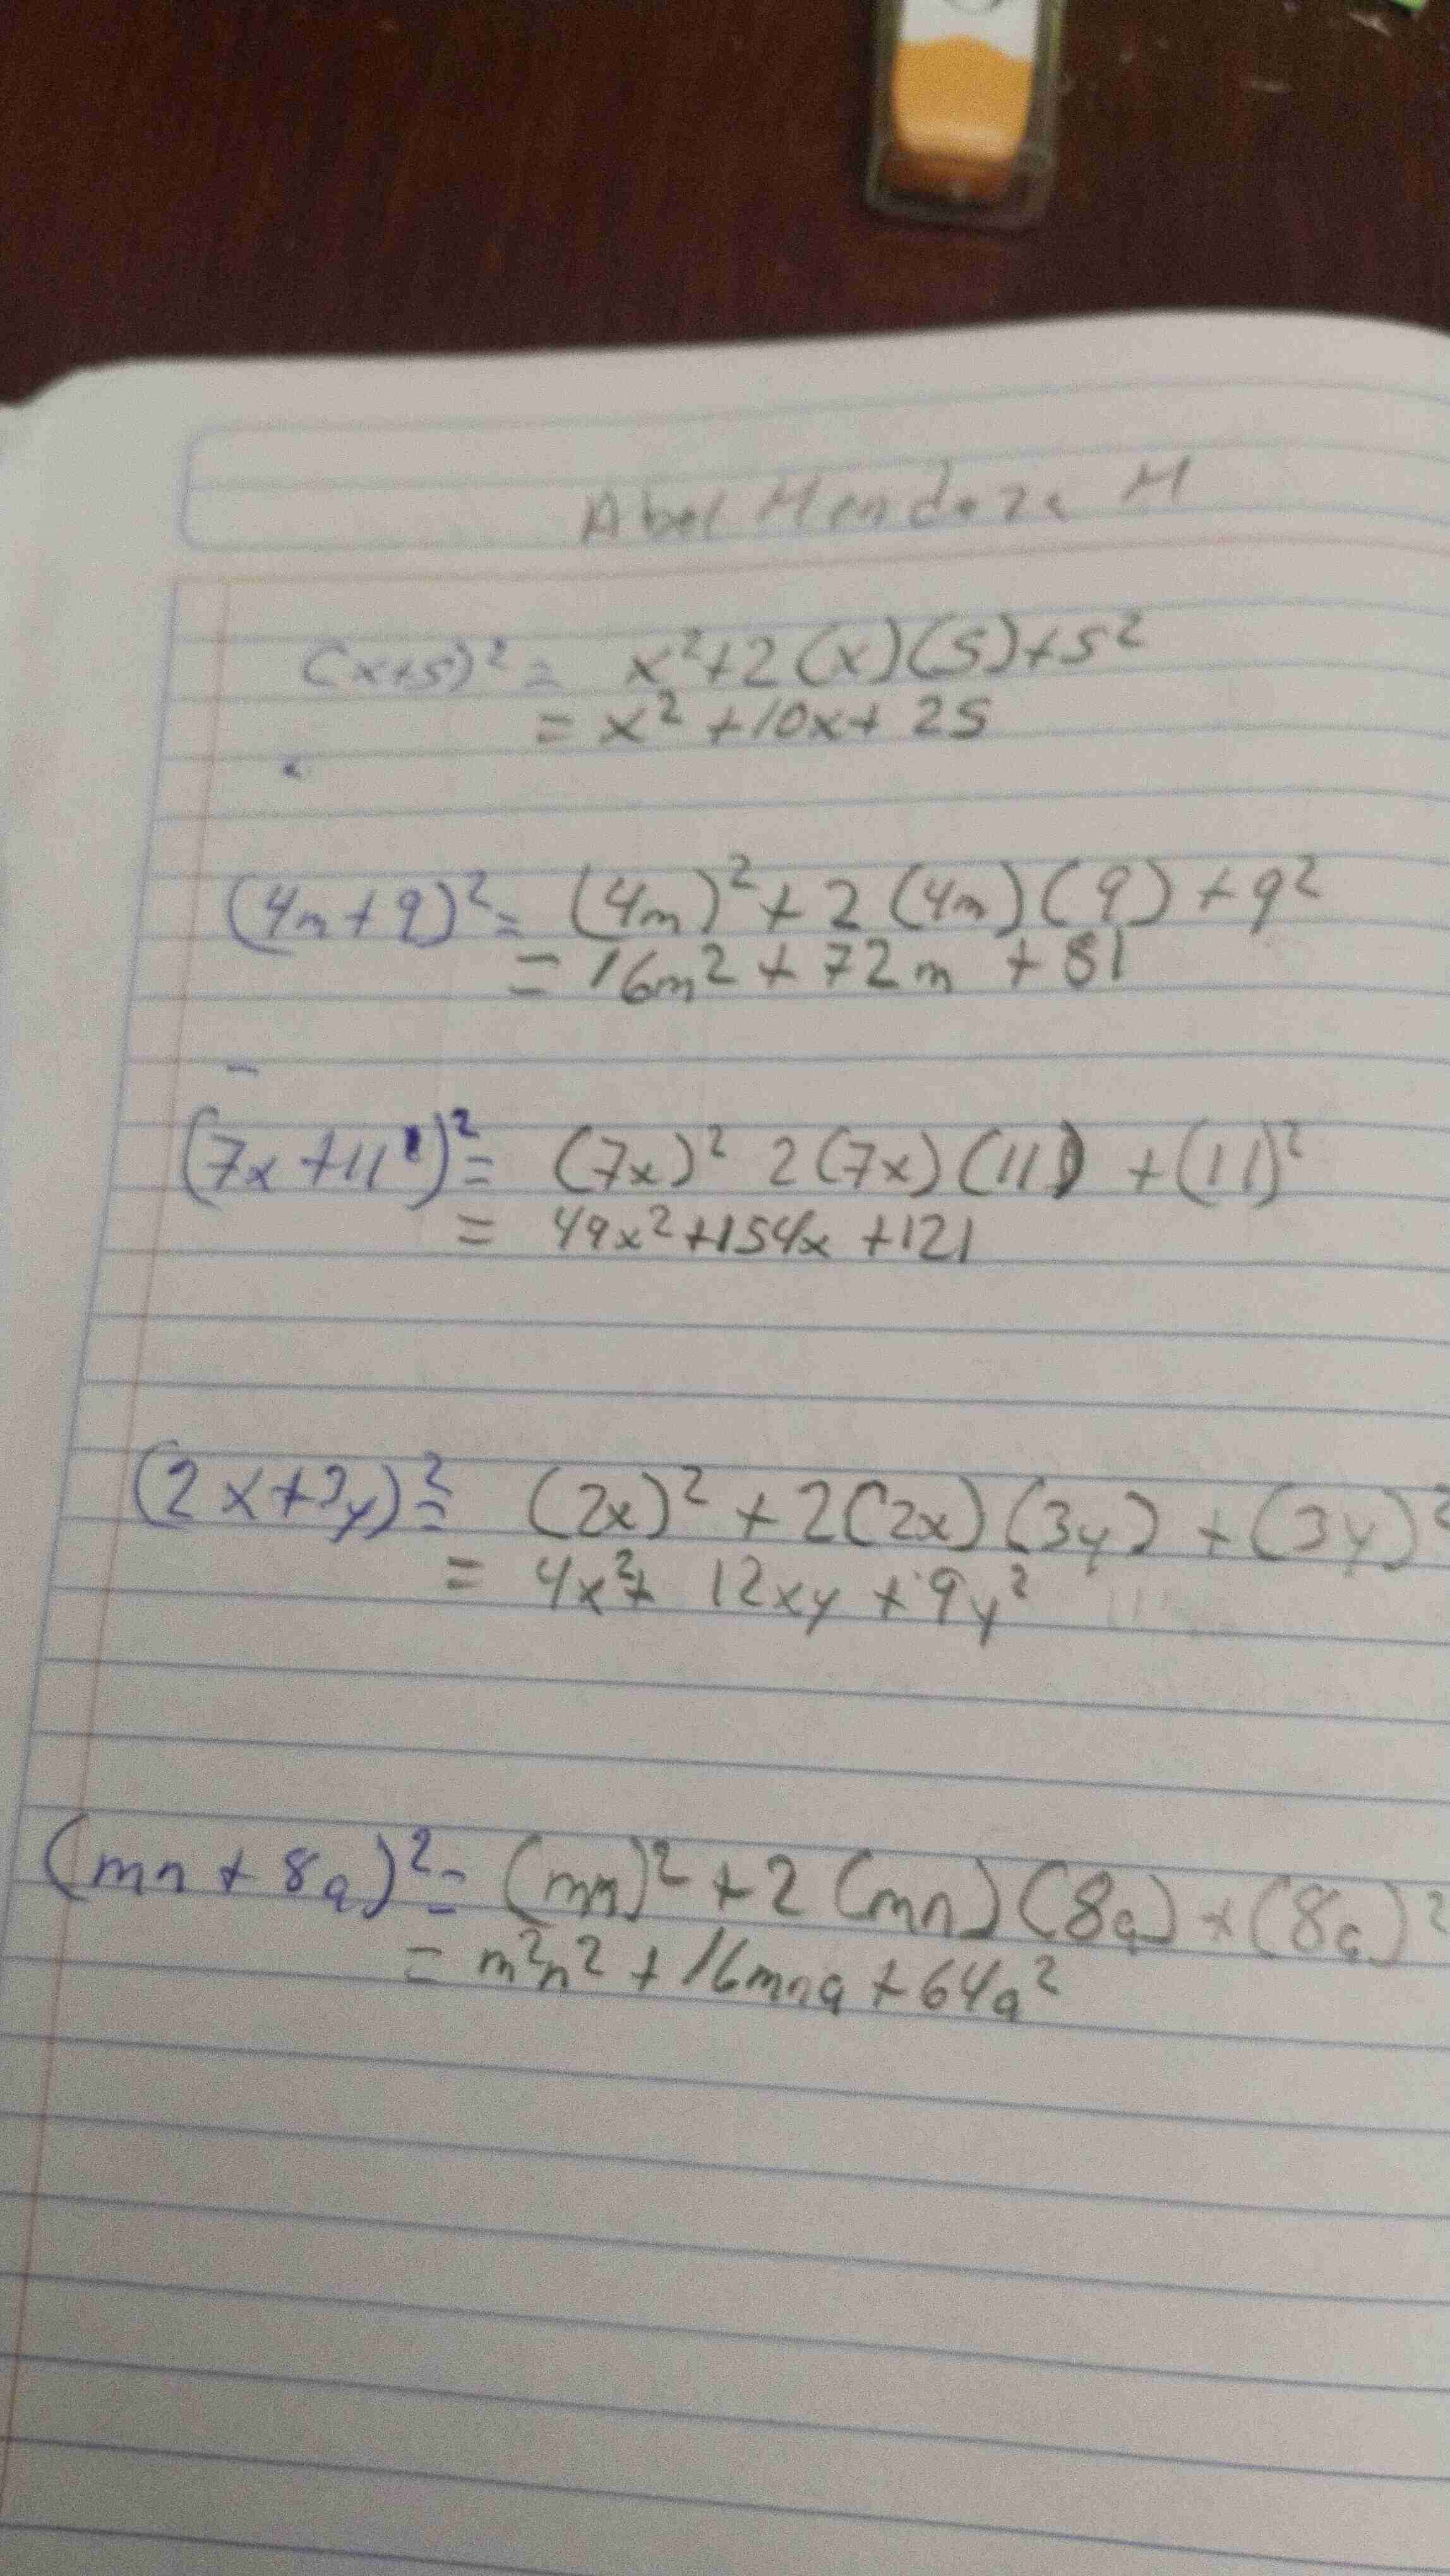 Abel Mendoza M
(x+5)² = x²+2(x)(5)+5²
= x²+10x+25
(4m+9)² = (4m)²+2(4m)(9)+9²
= 16m²+72m+81
(7x+11)² = (7x)² 2(7x)(11)+(11)²
= 49x²+154x+121
(2x+3y)² = (2x)²+2(2x)(3y)+(3y)²
= 4x²+12xy+9y²
(mn+8a)² = (mn)²+2(mn)(8a)+(8a)²
= m²n²+16mna+64a²